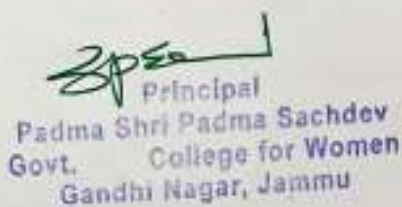 Principal
Padma Shri Padma Sachdev
Govt. College for Women
Gandhi Nagar, Jammu